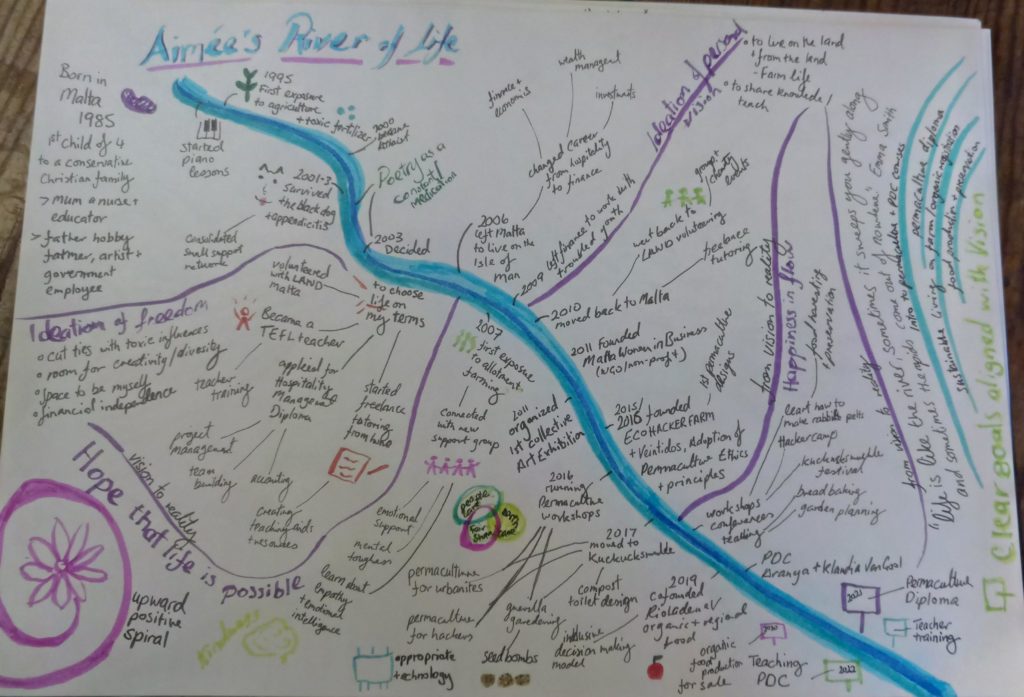 Aimée's River of life
Born in
Malta
1985
1st child of 4
to a conservative
Christian family
> Mum a nurse +
educator
> father hobby
farmer, artist +
government
employee
started
piano
lessons
1995
First exposure
to agriculture
+ toxic fertilizers
2000
became
2001-3
survived
the black dog
+ appendicitis
Consolidated
small support
network
Poetry as a
constant
medication
2003
Decided
to choose
life on
my terms
volunteered
with LAND
Malta
Became a
TEFL teacher
teacher
training
applied for
Hospitality
Management
Diploma
project
management
team
building
accounting
started
freelance
tutoring
from home
creating
teaching aids
+ resources
Ideation of freedom
cut ties with toxic influences
room for creativity/diversity
space to be myself
financial independence
vision to reality
Hope that life is possible
upward
positive
spiral
Kindness
2006
left Malta
to live on the
Isle of
Man
changed career
from hospitality
to finance
finance +
economics
wealth
management
investments
2007
first exposure
to allotment
farming
connected
with new
support group
emotional
support
mental
toughness
learn about
empathy
+ emotional
intelligence
2009 left finance to work with
troubled youth
Ideation of personal
vision
to live on the land
+ from the land
- Farm life
to share knowledge
teach
2010
moved back to Malta
went back to
LAND volunteering
group +
charity
events
freelance
tutoring
2011 Founded
Malta Women in Business
(NGO/non-profit)
2011
organized
1st Collective
Art Exhibition
2015 founded
ECOHACKERFARM
+ Veintidos, Adoption of
Permaculture Ethics
+ principles
1st permaculture
designs
people
care
earth
care
Fair
Share
2016
running
Permaculture
workshops
permaculture
for urbanites
permaculture
for hackers
guerilla
gardening
appropriate
+ technology
seed bombs
2017
moved to
Kuckucksmuhle
compost
toilet design
inclusive
decision making
model
workshops
conferences
teaching
learn how to
make rabbit pelts
Hackercamp
Kuckucksmuhle
festival
bread baking
garden planning
food foraging
+ preservation
from vision to reality
Happiness in flow
2019
cofounded
organic + regional
food
organic
food
production
for sale
PDC
Aranya + Klaudia VanGool
2020
Teaching
PDC
2021
Permaculture
Diploma
Teacher
training
2022
"life is like the river, sometimes it sweeps you gently along
and sometimes the rapids come out of nowhere" Emma Smith
from vision to reality
Intro to permaculture + PDC courses
permaculture diploma
sustainable living on farm/organic
food production + preservation
Clear goals aligned with Vision